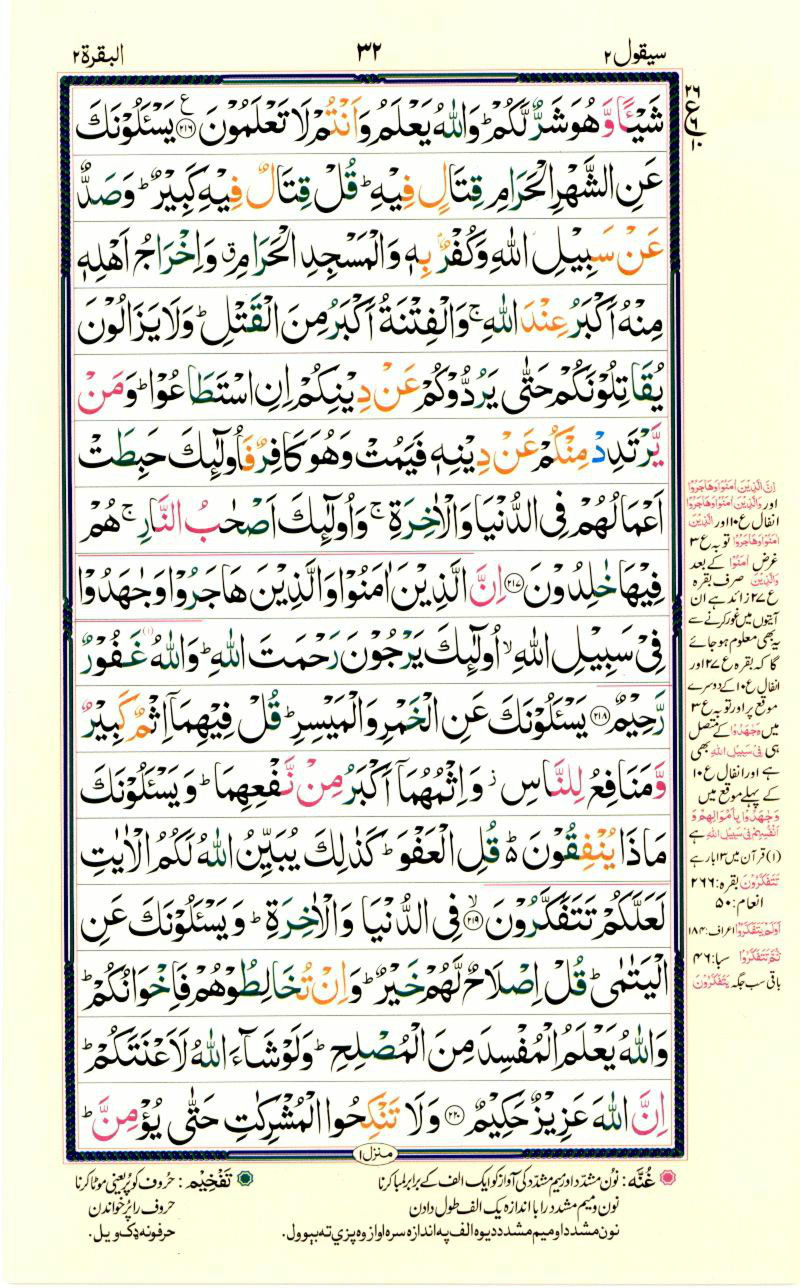 سیقول ۲
۳۲
البقرة ۲
شَيْـًٔا وَّهُوَ شَرٌّ لَّكُمْ ؕ وَاللّٰهُ يَعْلَمُ وَاَنْتُمْ لَا تَعْلَمُوْنَ ﴿۲۱۶﴾ ع يَسْـَٔلُوْنَكَ
عَنِ الشَّهْرِ الْحَرَامِ قِتَالٍ فِيْهِ ؕ قُلْ قِتَالٌ فِيْهِ كَبِيْرٌ ؕ وَصَدٌّ
عَنْ سَبِيْلِ اللّٰهِ وَكُفْرٌۢ بِهٖ وَالْمَسْجِدِ الْحَرَامِ ۗ وَاِخْرَاجُ اَهْلِهٖ
مِنْهُ اَكْبَرُ عِنْدَ اللّٰهِ ۚ وَالْفِتْنَةُ اَكْبَرُ مِنَ الْقَتْلِ ؕ وَلَا يَزَالُوْنَ
يُقَاتِلُوْنَكُمْ حَتّٰى يَرُدُّوْكُمْ عَنْ دِيْنِكُمْ اِنِ اسْتَطَاعُوْا ؕ وَمَنْ
يَّرْتَدِدْ مِنْكُمْ عَنْ دِيْنِهٖ فَيَمُتْ وَهُوَ كَافِرٌ فَاُولٰٓئِكَ حَبِطَتْ
اَعْمَالُهُمْ فِى الدُّنْيَا وَالْاٰخِرَةِ ۚ وَاُولٰٓئِكَ اَصْحٰبُ النَّارِ ۚ هُمْ
فِيْهَا خٰلِدُوْنَ ﴿۲۱۷﴾ اِنَّ الَّذِيْنَ اٰمَنُوْا وَالَّذِيْنَ هَاجَرُوْا وَجٰهَدُوْا
فِىْ سَبِيْلِ اللّٰهِ ۙ اُولٰٓئِكَ يَرْجُوْنَ رَحْمَتَ اللّٰهِ ؕ وَاللّٰهُ غَفُوْرٌ (۱)
رَّحِيْمٌ ﴿۲۱۸﴾ يَسْـَٔلُوْنَكَ عَنِ الْخَمْرِ وَالْمَيْسِرِ ؕ قُلْ فِيْهِمَاۤ اِثْمٌ كَبِيْرٌ
وَّمَنَافِعُ لِلنَّاسِ ز وَاِثْمُهُمَاۤ اَكْبَرُ مِنْ نَّفْعِهِمَا ؕ وَيَسْـَٔلُوْنَكَ
مَاذَا يُنْفِقُوْنَ ؕ۬ قُلِ الْعَفْوَ ؕ كَذٰلِكَ يُبَيِّنُ اللّٰهُ لَكُمُ الْاٰيٰتِ
لَعَلَّكُمْ تَتَفَكَّرُوْنَ ﴿۲۱۹﴾ ۙ فِى الدُّنْيَا وَالْاٰخِرَةِ ؕ وَيَسْـَٔلُوْنَكَ عَنِ
الْيَتٰمٰى ؕ قُلْ اِصْلَاحٌ لَّهُمْ خَيْرٌ ؕ وَاِنْ تُخَالِطُوْهُمْ فَاِخْوَانُكُمْ ؕ
وَاللّٰهُ يَعْلَمُ الْمُفْسِدَ مِنَ الْمُصْلِحِ ؕ وَلَوْ شَآءَ اللّٰهُ لَاَعْنَتَكُمْ ؕ
اِنَّ اللّٰهَ عَزِيْزٌ حَكِيْمٌ ﴿۲۲۰﴾ وَلَا تَنْكِحُوا الْمُشْرِكٰتِ حَتّٰى يُؤْمِنَّ ؕ
منزل ۱
۲۶
ع ۶
۱۰
اِنَّ الَّذِیْنَ اٰمَنُوْا وَهَاجَرُوْا
اور وَالَّذِیْنَ اٰمَنُوْا وَهَاجَرُوْا
انفال ع ۱۰ اور الَّذِیْنَ
اٰمَنُوْا وَهَاجَرُوْا توبہ ع ۳
غرض اٰمَنُوْا کے بعد
وَالَّذِیْنَ صرف بقرہ
ع ۲۷ زائد ہے ان
آیتوں میں غور کرنے سے
یہ بھی معلوم ہو جائے
گا کہ بقرہ ع ۲۷ اور
انفال ع ۱۰ کے دوسرے
موقع پر اور توبہ ع ۳
میں وَجٰهَدُوْا کے متصل
ہی فِیْ سَبِیْلِ اللّٰهِ بھی
ہے اور انفال ع ۱۰
کے پہلے موقع میں
وَجٰهَدُوْا بِاَمْوَالِهِمْ وَ
اَنْفُسِهِمْ فِیْ سَبِیْلِ اللّٰهِ ہے
(۱) قرآن میں ۱۳ بار ہے
تَتَفَكَّرُوْنَ بقرہ: ۲۶۶
انعام: ۵۰
اَوَلَمْ یَتَفَكَّرُوْا اعراف: ۱۸۴
ثُمَّ تَتَفَكَّرُوْا سبا: ۴۶
باقی سب جگہ یَتَفَكَّرُوْنَ
غُنَّه: نون مشدّد اور میم مشدّد کی آواز کو ایک الف کے برابر لمبا کرنا
نون و میم مشدد را با اندازه یک الف طول دادن
نون مشدد او میم مشدد دیوه الف په اندازه سره اواز وه پزي ته بېوول.
تَفْخِیْم: حُروف کو پُر یعنی موٹا کرنا
حروف را پُر خواندن
حرفونه ډک ویل.